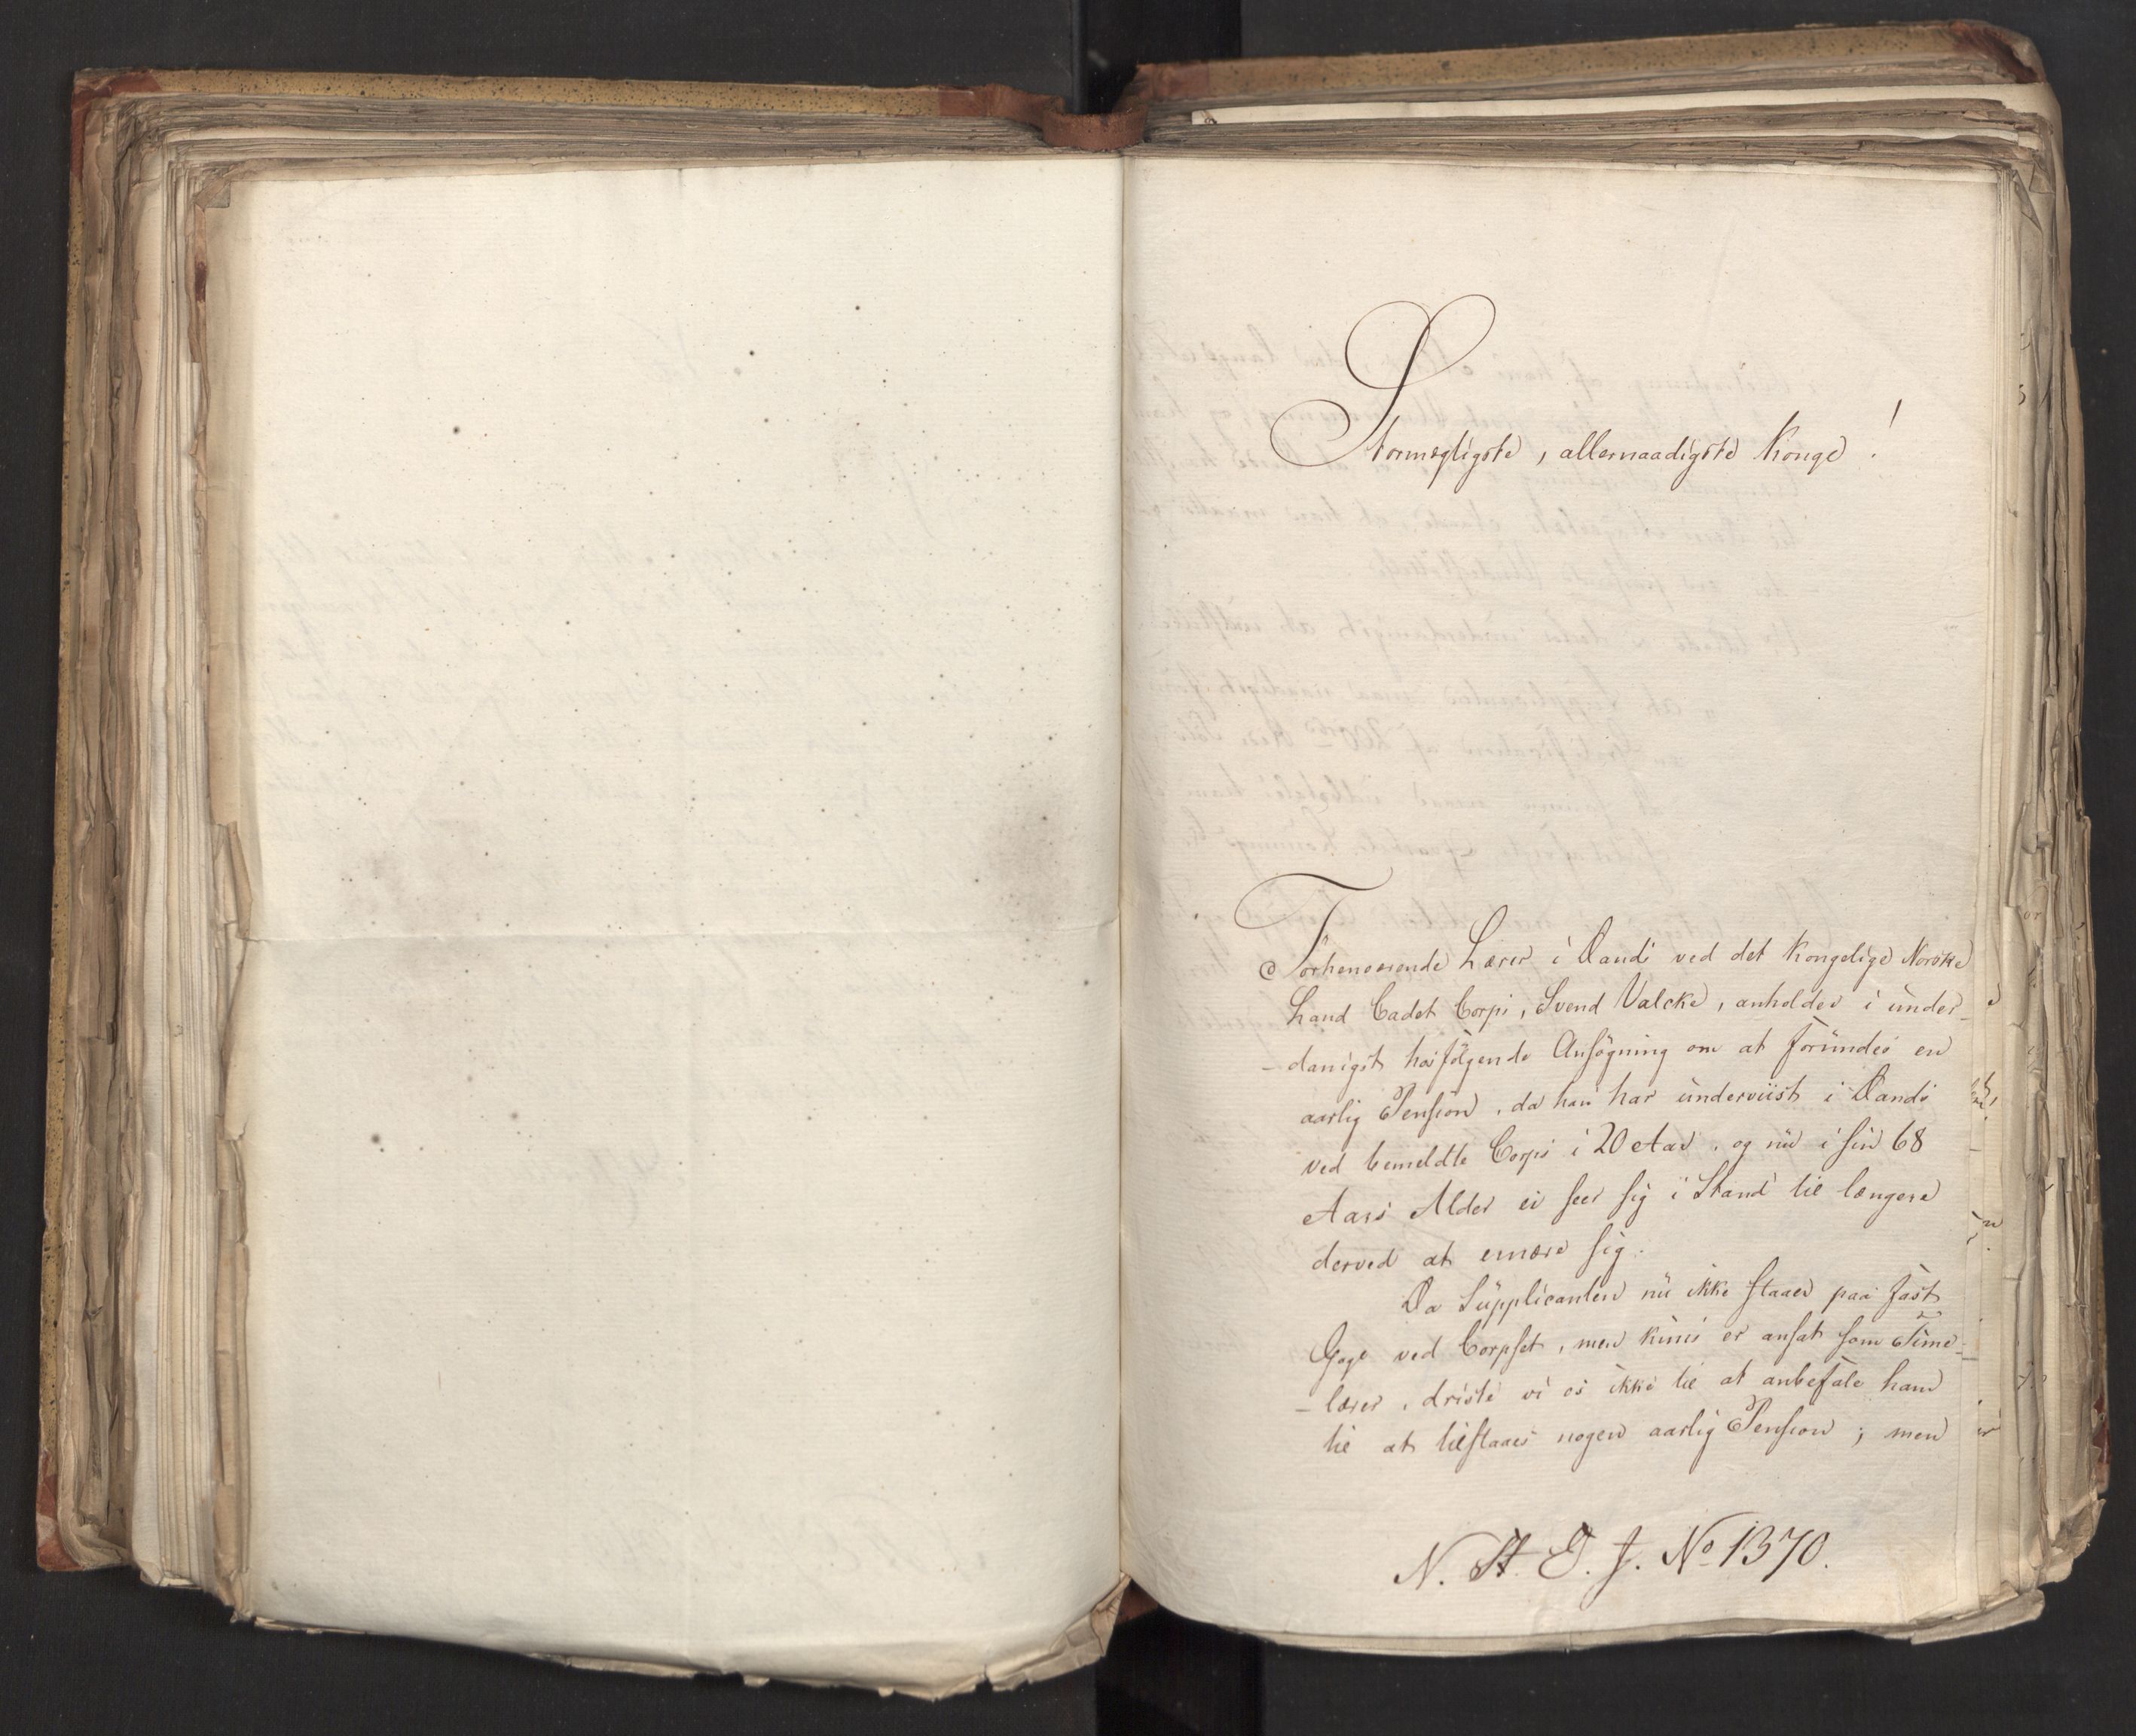 Stormægtigste, allernaadigste Konge!
Forhenværende Lærer i Dands ved det Kongelige Norske
Land Cadet Corps, Svend Valcke, anholder i under-
-danigst hosfølgende Ansøgning om at forundes en
aarlig Pension, da han har underviist i Dands
ved bemeldte Corps i 20 Aar, og nu i sin 68
Aars Alder ei seer sig i Stand til længere
derved at ernære sig.
Da Supplicanten nu ikke staaer paa fast
Gage ved Corpset, men kuns er ansat som Time-
-lærer, driste vi os ikke til at anbefale ham
til at tilstaaes nogen aarlig Pension; men
N. St. E. J. No 1370.